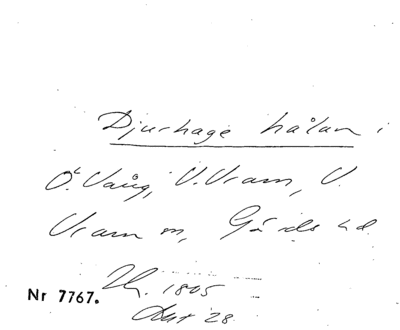 Djurhage hålan i
Ö. Vång, V. Vram, V.
Vram m, Gärds hd
Nr 7767. 1805
Akt 28